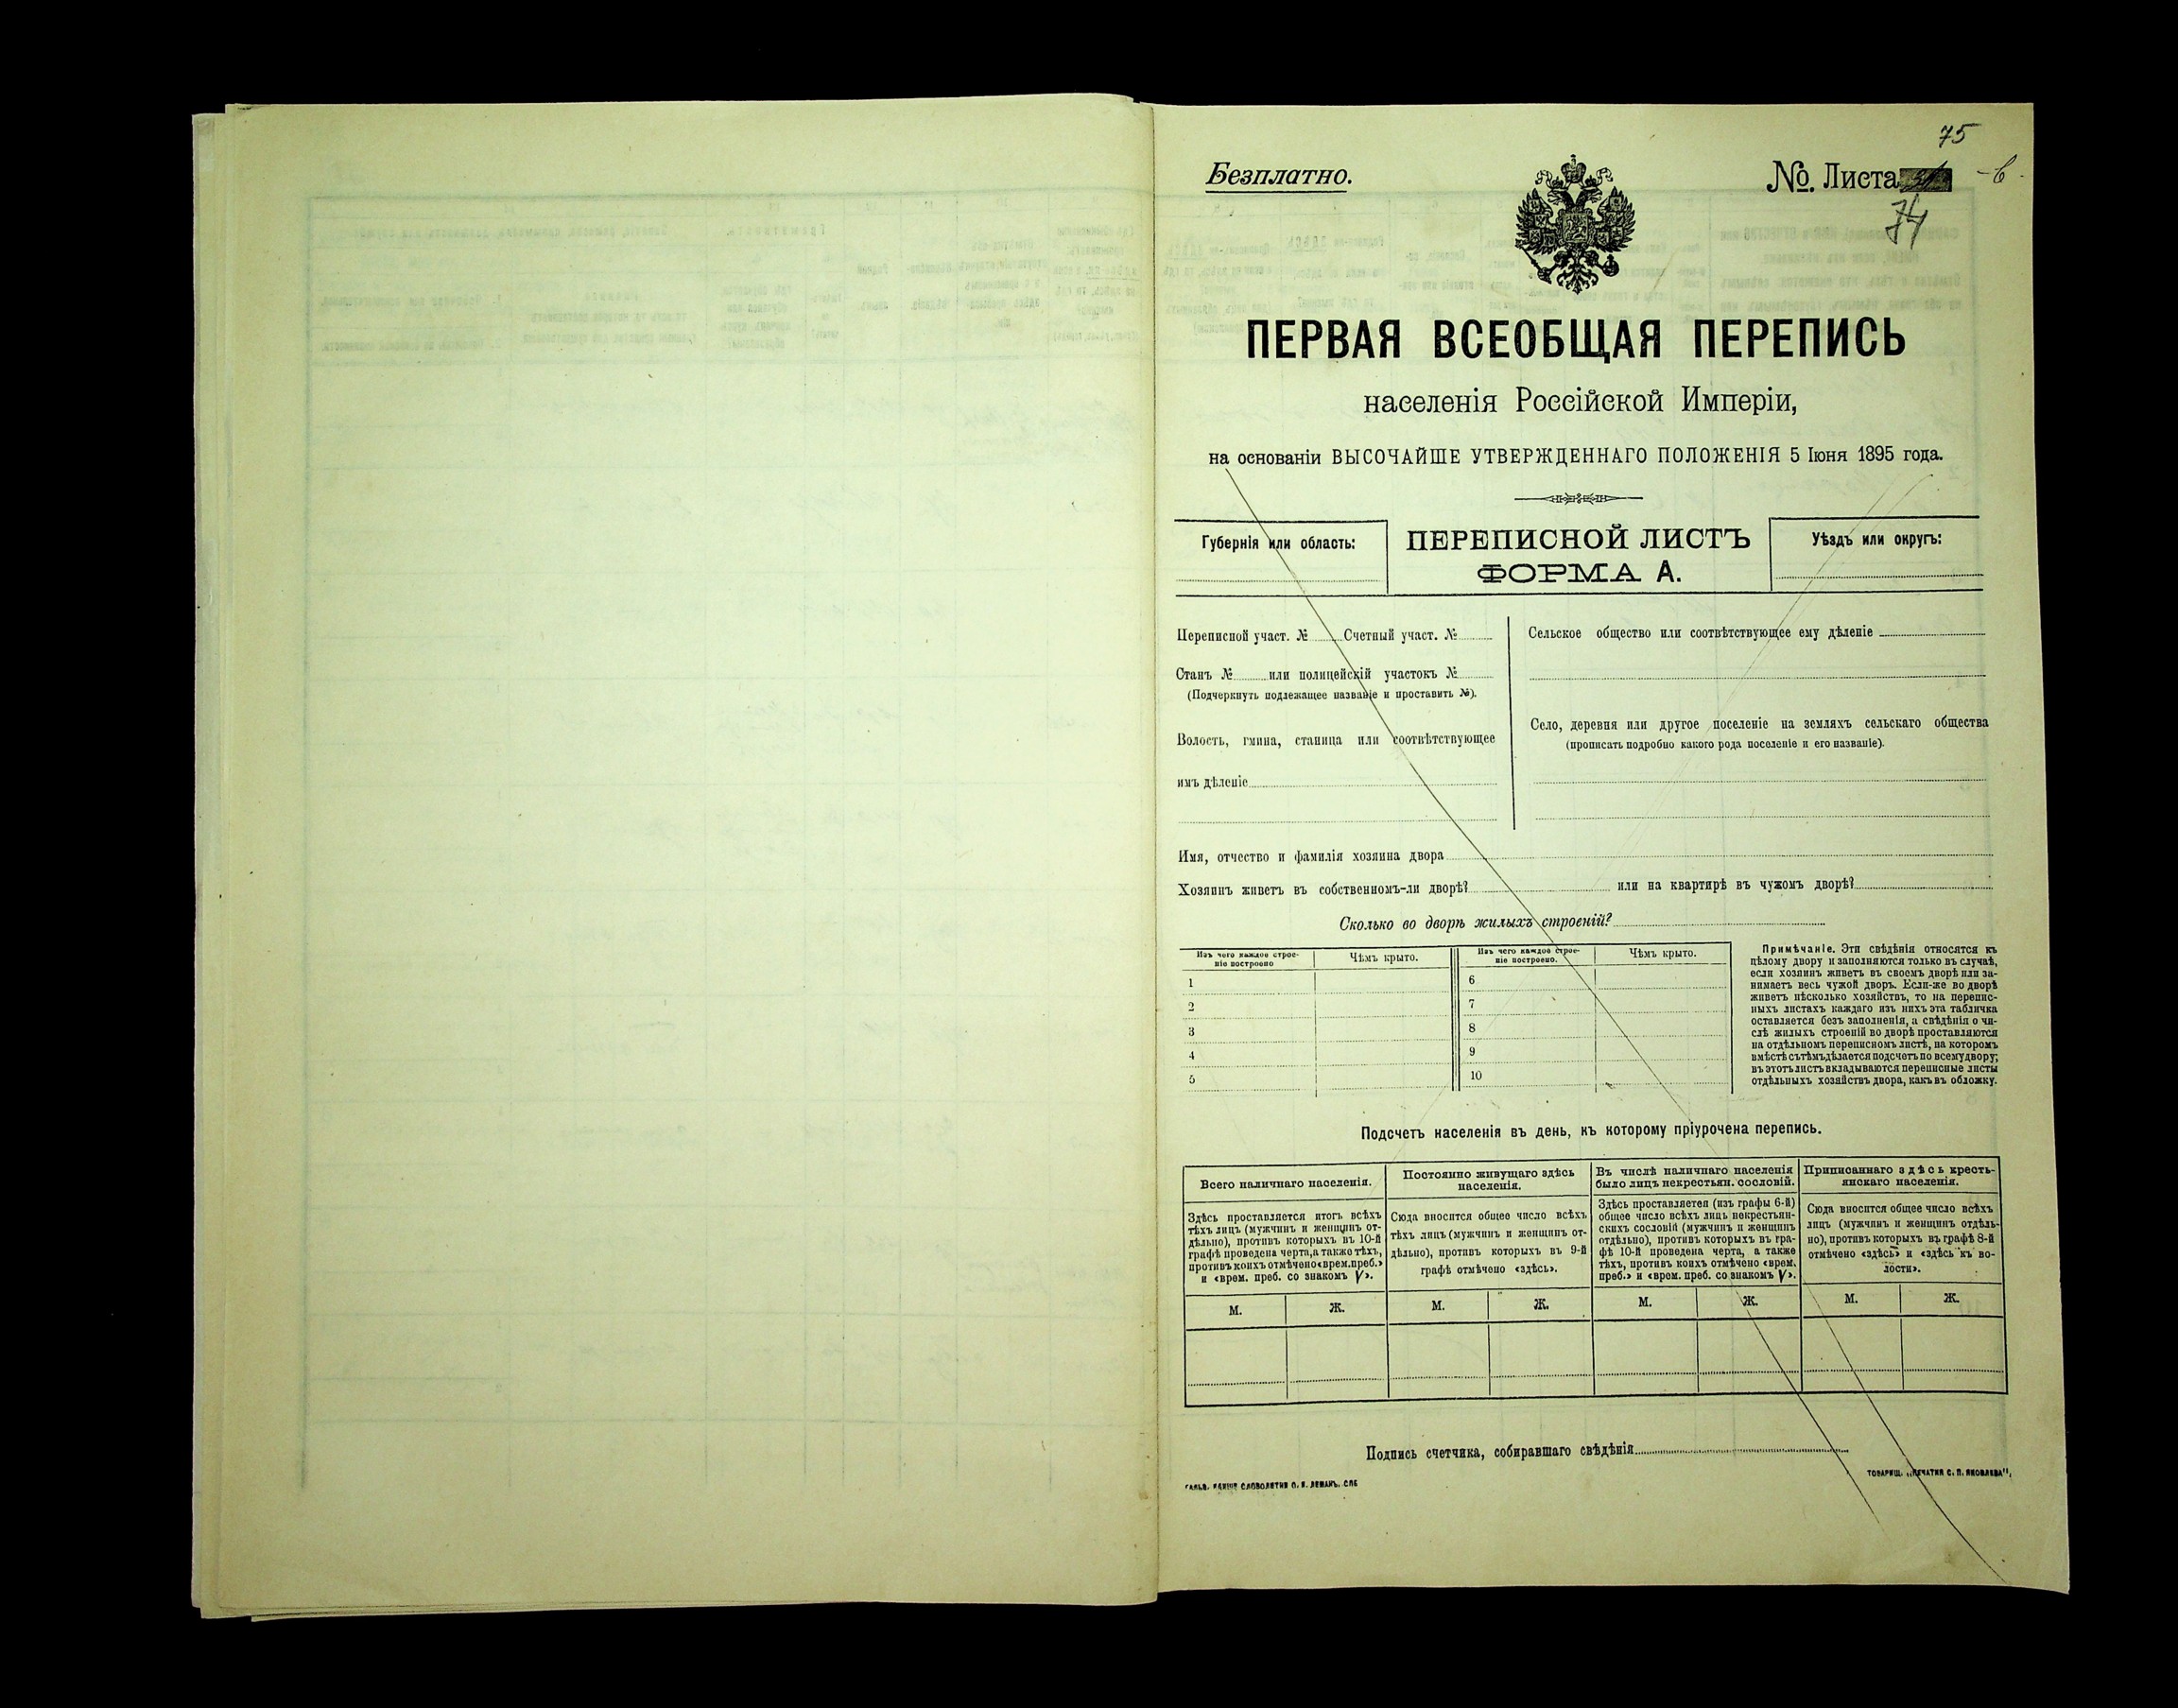 75
Безплатно.
№. Листа
74
ПЕРВАЯ ВСЕОБЩАЯ ПЕРЕПИСЬ
населенія Россійской Имперіи,
на основаніи ВЫСОЧАЙШЕ УТВЕРЖДЕННАГО ПОЛОЖЕНІЯ 5 Іюня 1895 года.
Губернія или область:
ПЕРЕПИСНОЙ ЛИСТЪ
ФОРМА А.
Уѣздъ или округъ:
Переписной участ. № Счетный участ. №
Станъ № или полицейскій участокъ №
(Подчеркнуть подлежащее названіе и проставить №).
Волость, гмина, станица или соотвѣтствующее
имъ дѣленіе
Сельское общество или соотвѣтствующее ему дѣленіе
Село, деревня или другое поселеніе на земляхъ сельскаго общества
(прописать подробно какого рода поселеніе и его названіе).
Имя, отчество и фамилія хозяина двора
Хозяинъ живетъ въ собственномъ-ли дворѣ? или на квартирѣ въ чужомъ дворѣ?
Сколько во дворѣ жилыхъ строеній?
Изъ чего каждое строе-
ніе построено
Чѣмъ крыто.
1
2
3
4
5
Изъ чего каждое строе-
ніе построено.
Чѣмъ крыто.
6
7
8
9
10
Примѣчаніе. Эти свѣдѣнія относятся къ
цѣлому двору и заполняются только въ случаѣ,
если хозяинъ живетъ въ своемъ дворѣ или за-
нимаетъ весь чужой дворъ. Если-же во дворѣ
живетъ нѣсколько хозяйствъ, то на перепис-
ныхъ листахъ каждаго изъ нихъ эта табличка
оставляется безъ заполненія, а свѣдѣнія о чи-
слѣ жилыхъ строеній во дворѣ проставляются
на отдѣльномъ переписномъ листѣ, на которомъ
вмѣстѣ съ тѣмъ дѣлается подсчетъ по всему двору;
въ этотъ листъ вкладываются переписные листы
отдѣльныхъ хозяйствъ двора, какъ въ обложку.
Подсчетъ населенія въ день, къ которому пріурочена перепись.
Всего наличнаго населенія.
Здѣсь проставляется итогъ всѣхъ
тѣхъ лицъ (мужчинъ и женщинъ от-
дѣльно), противъ которыхъ въ 10-й
графѣ проведена черта, а также тѣхъ,
противъ коихъ отмѣчено «врем. преб.»
и «врем. преб. со знакомъ V».
М. Ж.
Постоянно живущаго здѣсь
населенія.
Сюда вносится общее число всѣхъ
тѣхъ лицъ (мужчинъ и женщинъ от-
дѣльно), противъ которыхъ въ 9-й
графѣ отмѣчено «здѣсь».
М. Ж.
Въ числѣ наличнаго населенія
было лицъ некрестьян. сословій.
Здѣсь проставляется (изъ графы 6-й)
общее число всѣхъ лицъ некрестьян-
скихъ сословій (мужчинъ и женщинъ
отдѣльно), противъ которыхъ въ гра-
фѣ 10-й проведена черта, а также
тѣхъ, противъ коихъ отмѣчено «врем.
преб.» и «врем. преб. со знакомъ V».
М. Ж.
Приписаннаго здѣсь кресть-
янскаго населенія.
Сюда вносится общее число всѣхъ
лицъ (мужчинъ и женщинъ отдѣль-
но), противъ которыхъ въ графѣ 8-й
отмѣчено «здѣсь» и «здѣсь къ во-
лости».
М. Ж.
Подпись счетчика, собиравшаго свѣдѣнія
СЛОВОЛИТНЯ О. И. ЛЕМАНЪ. СПБ
ТОВАРИЩ. „ПЕЧАТНЯ С. П. ЯКОВЛЕВА",